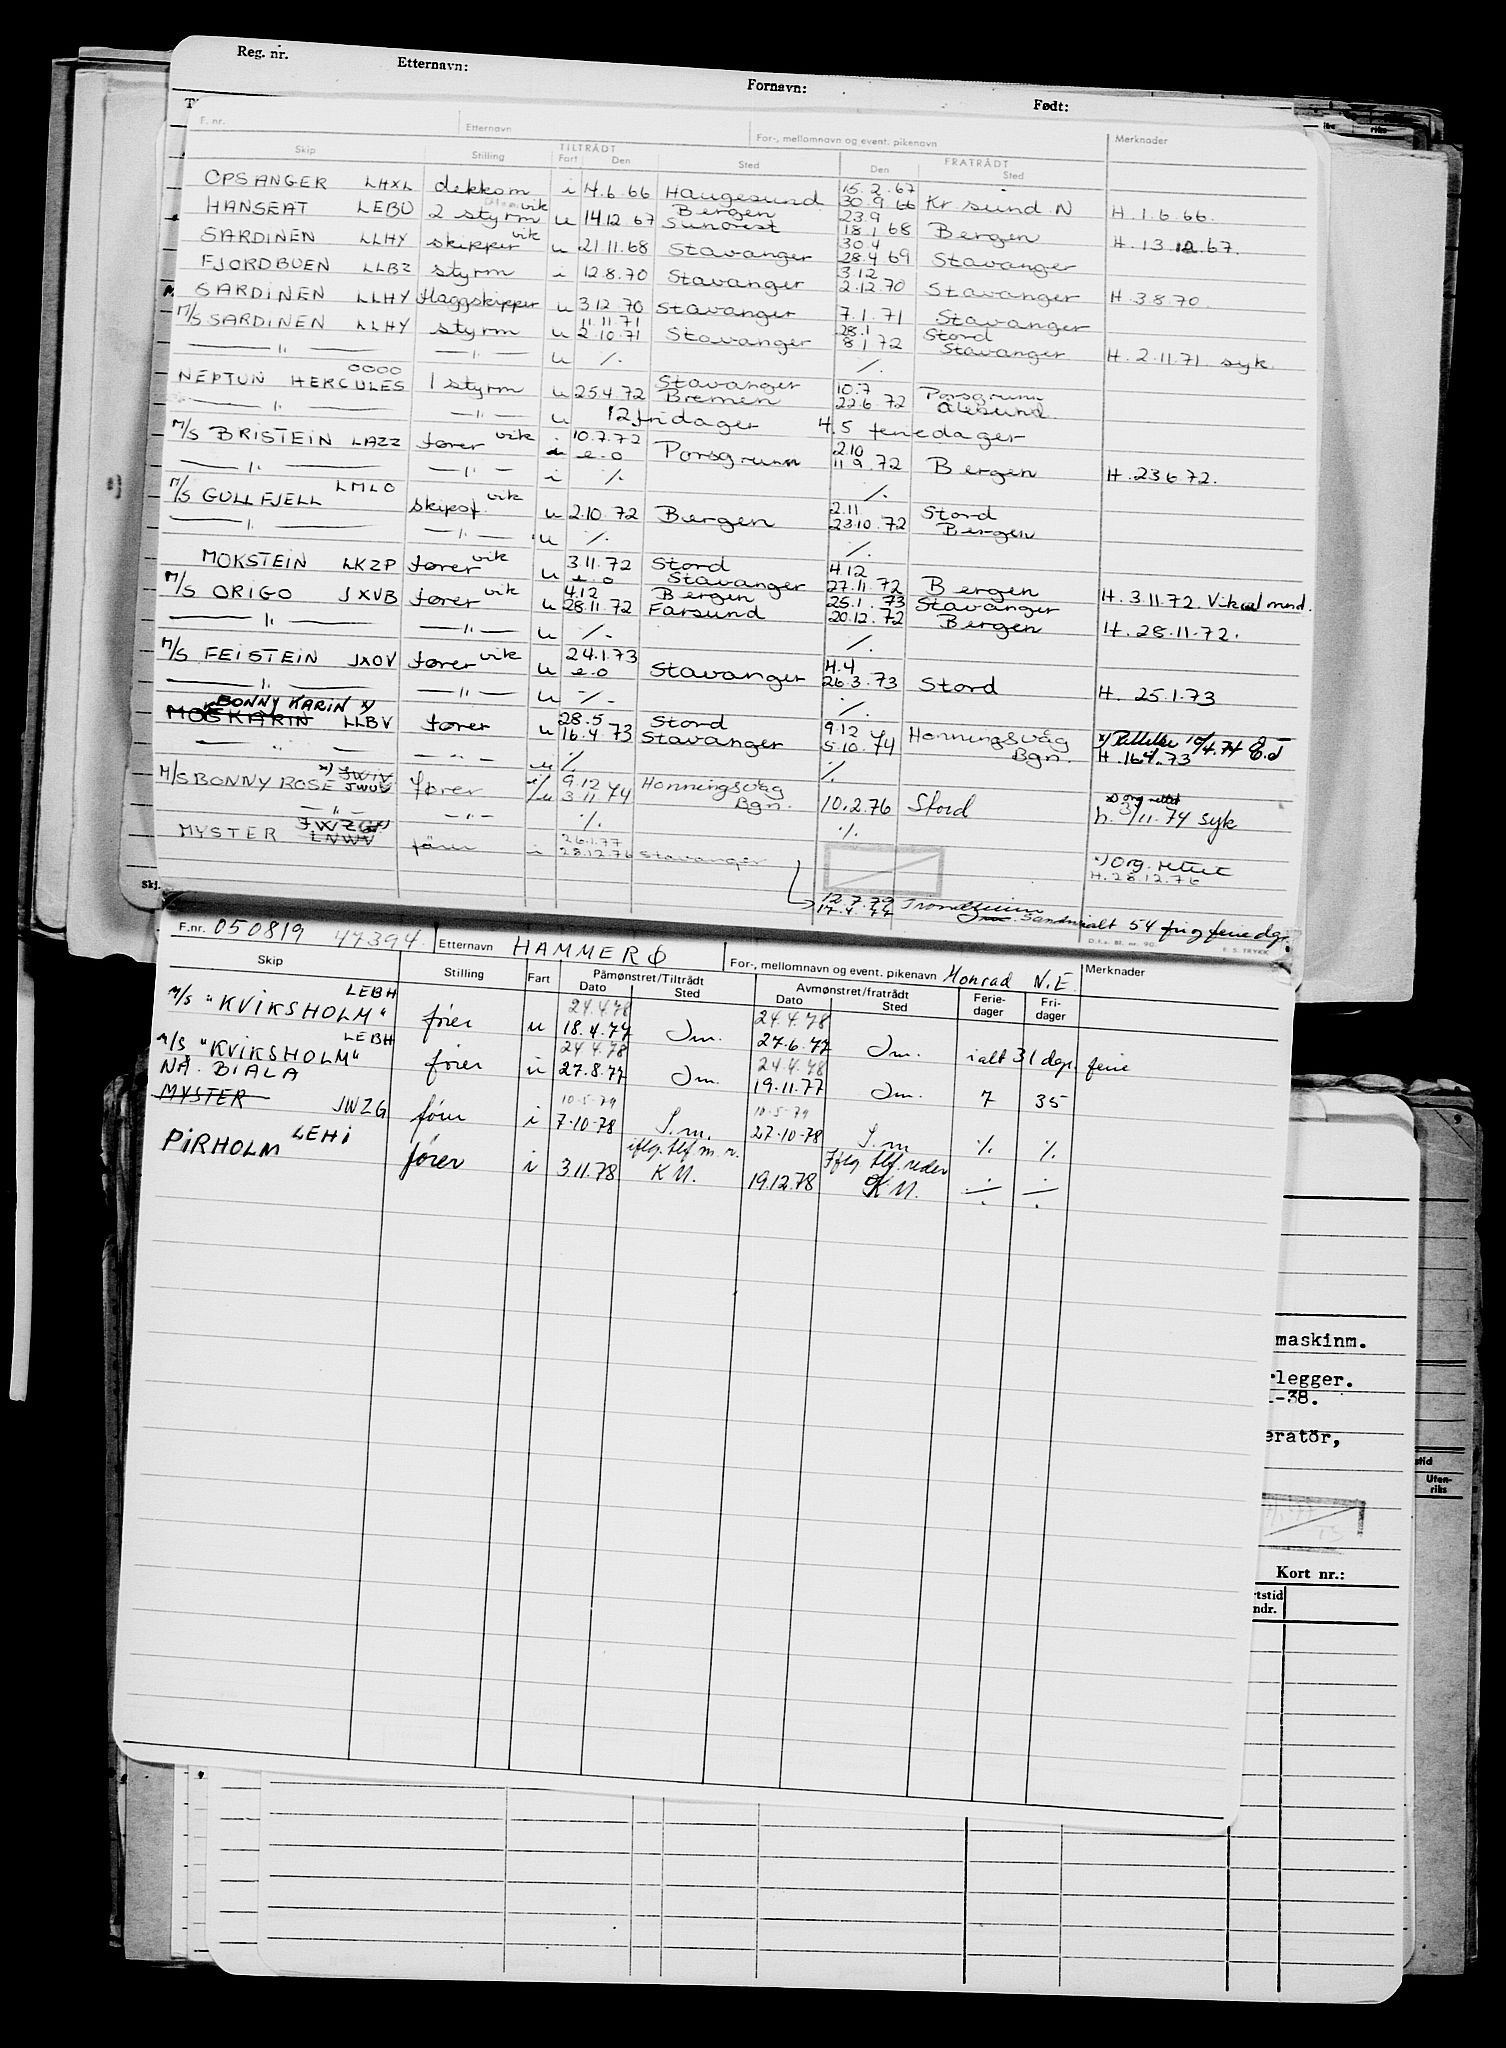 Reg. nr. Etternavn: Fornavn: Født:
F. nr. Etternavn For-, mellomnavn og event. pikenavn Merknader
Skip Stilling TILTRÅDT FRATRÅDT
Fart Den Sted Den Sted
OPSANGER LHXL dekkom i 14.6.66 Haugesund 15.2.67 30.9.66 Kr.sund.N H.1.6.66.
HANSEAT LEBU 2 styrm vik u 14.12.67 Bergen 23.9 18.1.68 Bergen H.13.12.67.
SARDINEN LLHY skipper vik u 21.11.68 Stavanger 30.4 28.4.69 Stavanger
FJORDBUEN LLBZ styrm i 12.8.70 Stavanger 3.12 2.12.70 Stavanger H.3.8.70.
SARDINEN LLHY flaggskipper u 3.12.70 Stavanger 7.1.71 Stavanger
M/S SARDINEN LLHY styrm u 11.11.71 2.10.71 Stavanger 28.1 8.1.72 Stord Stavanger H.2.11.71. syk.
—"— —"— u ٪ ٪
NEPTUN HERCULES OOOO 1 styrm u 25.4.72 Stavanger Bremen 10.7 22.6.72 Porsgrunn Ålesund
—"— —"— u 12 fridager 4.5 feriedager
M/S BRISTEIN LAZZ fører vik i 10.7.72 e.o Porsgrunn 2.10 11.9.72 Bergen H.23.6.72.
—"— —"— i ٪ ٪
M/S GULLFJELL LMLO skipsf. vik u 2.10.72 Bergen 2.11 23.10.72 Stord Bergen
—"— —"— u ٪ ٪
MOKSTEIN LKZP fører vik u 3.11.72 e.o Stord Stavanger 4.12 27.11.72 Bergen H.3.11.72. Vik
M/S ORIGO JXVB fører vik u 4.12 28.11.72 Bergen Farsund 25.1.73 20.12.72 Stavanger Bergen H.28.11.72.
—"— —"— u ٪ ٪
M/S FEISTEIN JXOV fører vik u 24.1.73 e.o Stavanger 4.4 26.3.73 Stord H. 25.1.73
—"— —"— u ٪ ٪
BONNY KARIN x)
MOSKARIN LLBV fører u 28.5 16.4.73 Stord Stavanger 9.12 5.10.74 Honningsvåg Bgn. H.16.4.73
—"— —"— u ٪ ٪
M/S BONNY ROSE x) JWUV fører i/u 9.12 3.11.74 Honningsvåg Bgn. 10.2.76 Stord h. 3/11.74 syk
—"— —"— ٪ ٪
MYSTER JWZG LNWV förer i 26.1.77 28.12.76 Stavanger x) org. rettet H.28.12.76
12.7.79 17.4.77 Trondheim ialt 54 fri og ferie dgr.
Skj.
D.f.s. Bl. nr. 90. E. S. TRYKK
F.nr. 050819 47394. Etternavn HAMMERØ For-, mellomnavn og event. pikenavn Monrad N.E. Merknader
Skip Stilling Fart Påmønstret/Tiltrådt Avmønstret/fratrådt Ferie- dager Fri- dager
Dato Sted Dato Sted
M/S "KVIKSHOLM" LEBH fører u 24.4.78 18.4.77 Jm. 24.4.78 27.6.77 Jm. ialt 31 dgr. ferie
M/S "KVIKSHOLM" LEBH fører u 24.4.78 27.8.77 Jm. 24.4.78 19.11.77 Jm. 7 35
NÅ. BIALA
MYSTER JWZG förer i 10-5-79 7-10-78 S.m. 10-5-79 27-10-78 S.m ٪ ٪
PIRHOLM LEHI fører i 3.11.78 iflg. tlf. m. r. K M. 19.12.78 Iflg tlf. reder K M. ÷ ÷
maskinm.
rlegger.
-38.
eratör,
Uten-
riks
Kort nr.:
rtstid
ndr.